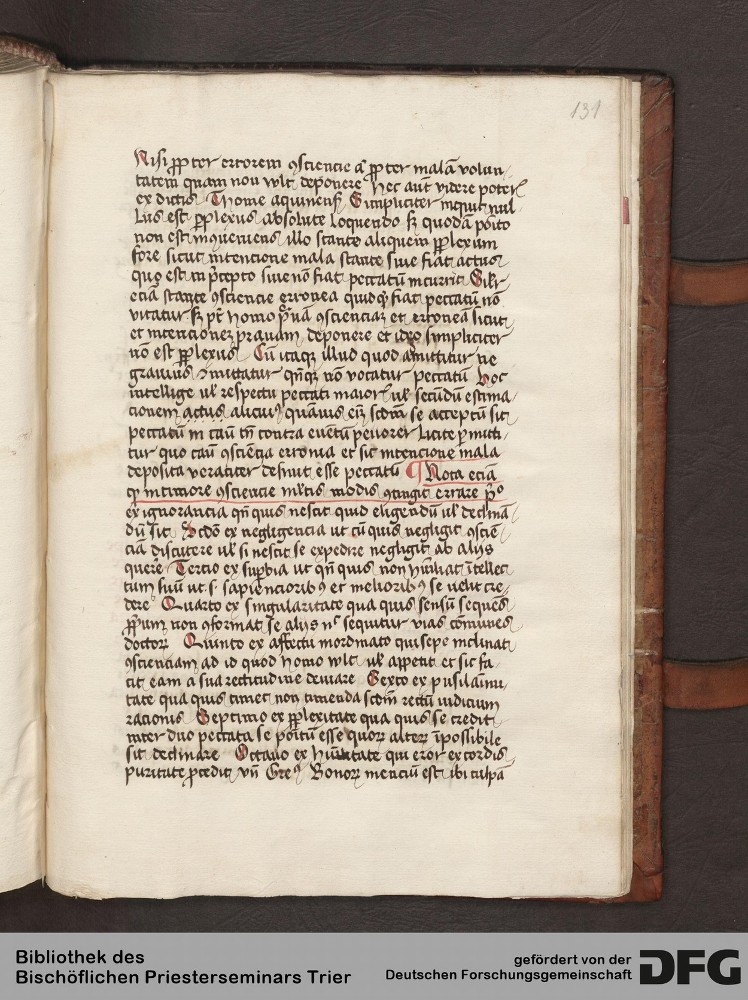 131
Nisi ꝓpter errorem ꝯsciencie aut ꝓpter malā volun-
tatem quam non vult deponere hec aūt videre poterit
ex dictis Thome aquinens Simpliciter inquit nul-
lus est ꝑplexus absolute loquendo sꝫ quodā pōito
non est inꝯueniens illo stante aliquem ꝑplexum
fore sicut intencione mala stante siue fiat actus
qui est in p̄cepto siue non fiat peccatū incurrit Silr
eciā stante ꝯsciencie erronea quidqꝫ fiat peccatū nō
vitatur sꝫ pt̄ homo ꝯscienciaꝫ erroneā sicut
et intencioneꝫ prauam deponere et ideo simpliciter
nō est ꝑplexus Cū itaqꝫ illud quod amittitur ne
grauius ꝯmittatur nō vocatur peccatū hoc
intellige vl respectu peccati maioris vl secūdū estima-
cionem actus alicuius quāuis eī scdm se acceptū sit
peccatū in cāu tn̄ contra euētū peiorem licite ꝑmitti-
tur quo cāu ꝯsciēcia erronia et sic intencione mala
deposita veraciter desinit esse peccatū ¶ Nota eciā
qꝫ in ꝯsciencie multis modis ꝯtingit errare pº
ex ignorancia qn̄ quis nescit quid eligendū vl declinā-
dū sit Scdō ex negligencia ut cū quis negligit ꝯsciē-
ciā discutere vl si nescit se expedire negligit ab alijs
querere Tercio ex suꝑbia ut qn̄ quis non hūiliat ītellec-
tum suū ut s sapiencioribꝯ et melioribꝯ se velit cre-
dere Quarto ex singularitate qua quis sensū sequēs
ꝓprium non ꝯformat se alijs nec sequitur vias cōmunes
doctorꝝ Quinto ex affectu inordinato qui sepe inclinat
ꝯscienciam ad id quod homo vult vl appetit et sic fa-
cit eam a sua rectitudine deuiare Sexto ex pusilanimi-
tate qua quis timet non timenda scdm rectū iudicium
racionis Septimo ex ꝑplexitate qua quis se credit
inter duo peccata se pōitū esse quorꝝ alterꝝ īpossibile
sit declinare Octauo ex hūilitate qui error ex cordis
puritate ꝓcedit vn̄ Greꝯ Bonorꝝ mencium est ibi culpā
Bibliothek des
Bischöflichen Priesterseminars Trier
gefördert von der
Deutschen Forschungsgemeinschaft
DFG